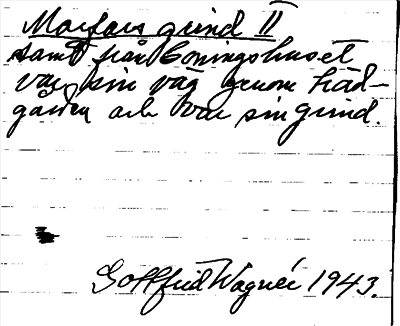 Morfars grind II
samt från boningshuset
var sin väg genom träd-
gården och var sin grind.
Gottfrid Wagnér 1943.